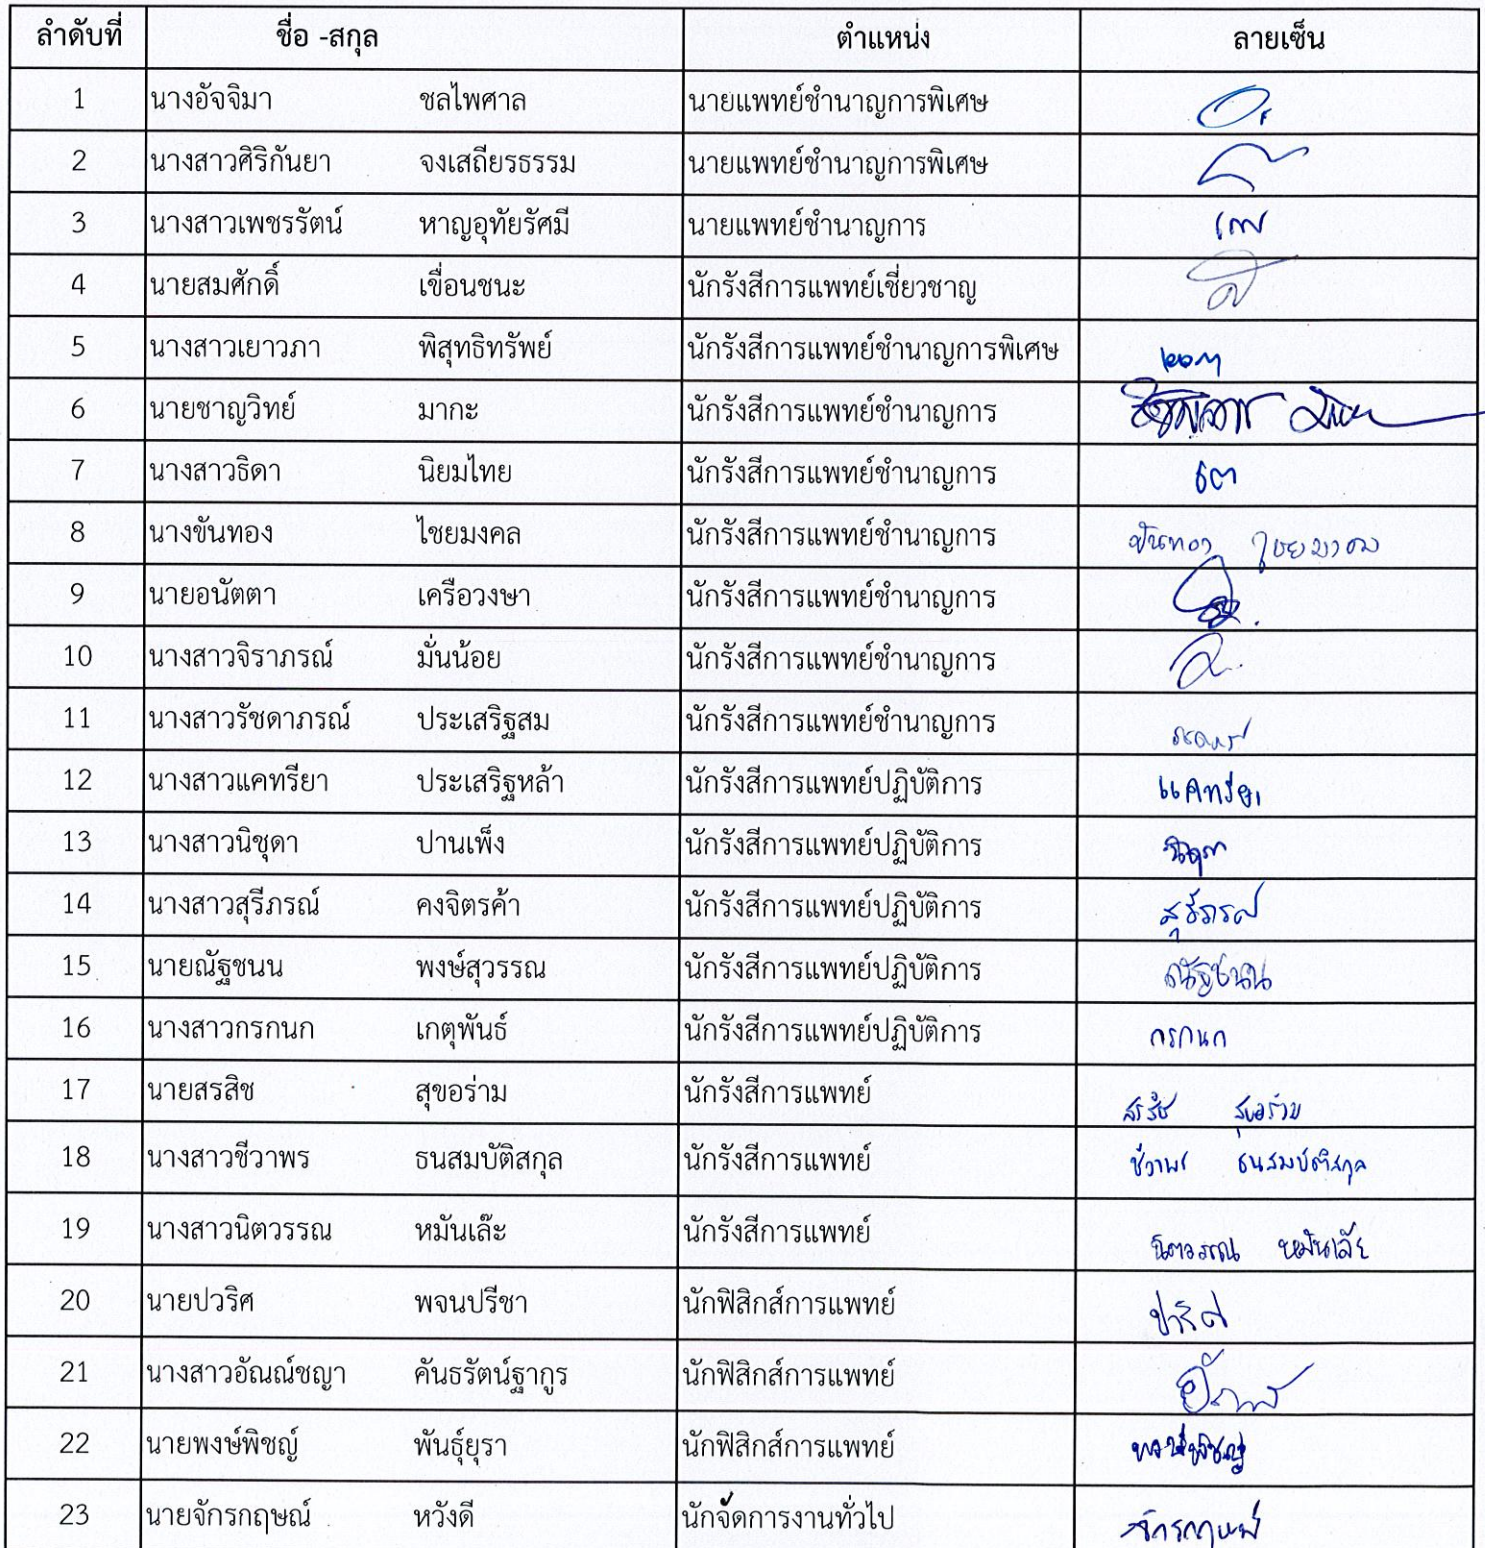 ลำดับที่ ชื่อ -สกุล ตำแหน่ง ลายเซ็น
1 นางอัจจิมา ชลไพศาล นายแพทย์ชำนาญการพิเศษ
2 นางสาวศิริกันยา จงเสถียรธรรม นายแพทย์ชำนาญการพิเศษ
3 นางสาวเพชรรัตน์ หาญอุทัยรัศมี นายแพทย์ชำนาญการ
4 นายสมศักดิ์ เขื่อนชนะ นักรังสีการแพทย์เชี่ยวชาญ
5 นางสาวเยาวภา พิสุทธิทรัพย์ นักรังสีการแพทย์ชำนาญการพิเศษ
6 นายชาญวิทย์ มากะ นักรังสีการแพทย์ชำนาญการ
7 นางสาวธิดา นิยมไทย นักรังสีการแพทย์ชำนาญการ
8 นางขันทอง ไชยมงคล นักรังสีการแพทย์ชำนาญการ ขันทอง ไชยมงคล
9 นายอนัตตา เครือวงษา นักรังสีการแพทย์ชำนาญการ
10 นางสาวจิราภรณ์ มั่นน้อย นักรังสีการแพทย์ชำนาญการ
11 นางสาวรัชดาภรณ์ ประเสริฐสม นักรังสีการแพทย์ชำนาญการ
12 นางสาวแคทรียา ประเสริฐหล้า นักรังสีการแพทย์ปฏิบัติการ แคทรียา
13 นางสาวนิชุดา ปานเพ็ง นักรังสีการแพทย์ปฏิบัติการ นิชุดา
14 นางสาวสุรีภรณ์ คงจิตรค้า นักรังสีการแพทย์ปฏิบัติการ สุรีภรณ์
15 นายณัฐชนน พงษ์สุวรรณ นักรังสีการแพทย์ปฏิบัติการ ณัฐชนน
16 นางสาวกรกนก เกตุพันธ์ นักรังสีการแพทย์ปฏิบัติการ กรกนก
17 นายสรสิช สุขอร่าม นักรังสีการแพทย์ สรสิช สุขอร่าม
18 นางสาวชีวาพร ธนสมบัติสกุล นักรังสีการแพทย์ ชีวาพร ธนสมบัติสกุล
19 นางสาวนิตวรรณ หมันเล๊ะ นักรังสีการแพทย์ นิตวรรณ หมันเล๊ะ
20 นายปวริศ พจนปรีชา นักฟิสิกส์การแพทย์ ปวริศ
21 นางสาวอัณณ์ชญา คันธรัตน์ฐากูร นักฟิสิกส์การแพทย์
22 นายพงษ์พิชญ์ พันธุ์ยุรา นักฟิสิกส์การแพทย์ พงษ์พิชญ์
23 นายจักรกฤษณ์ หวังดี นักจัดการงานทั่วไป จักรกฤษณ์